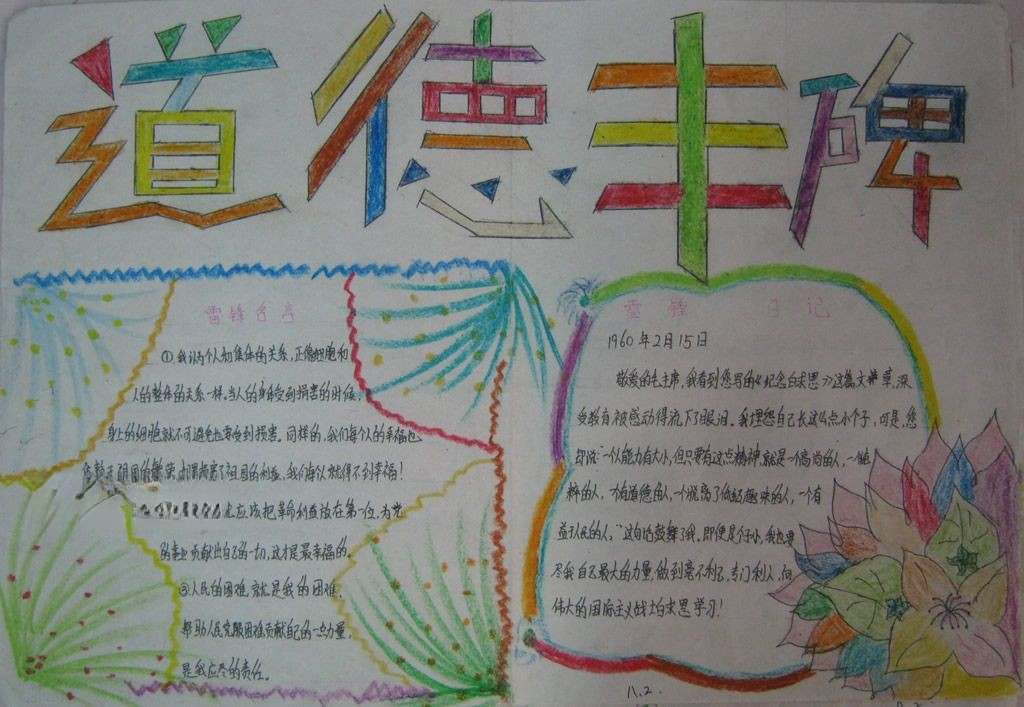 道德丰碑
雷锋名言
①我认为个人和集体的关系,正像细胞和
人的整体的关系一样,当人的身体受到损害的时候,
身上的细胞就不可避免也要受到损害。同样的,我们每个人的幸福也
祖国的繁荣,如果损害了祖国的利益,我们每个人就得不到幸福!
应该把革命利益放在第一位,为党
的事业贡献出自己的一切,这才是最幸福的。
③人民的困难,就是我的困难,
帮助人民克服困难贡献自己的一点力量,
是我应尽的责任。
雷锋 日记
1960年2月15日
敬爱的毛主席,我看到您写的《纪念白求恩》这篇文章,深
受教育被感动得流下了眼泪。我埋怨自己长这么点小个子,可是,您
却说:一个人能力有大小,但只要有这点精神,就是一个高尚的人,一个纯
粹的人,一个有道德的人,一个脱离了低级趣味的人,一个有
益于人民的人。”这句话鼓舞了我。即使是个子小,我也要
尽我自己最大的力量,做到毫不利己,专门利人,向
伟大的国际主义战士白求恩学习!
11.2.